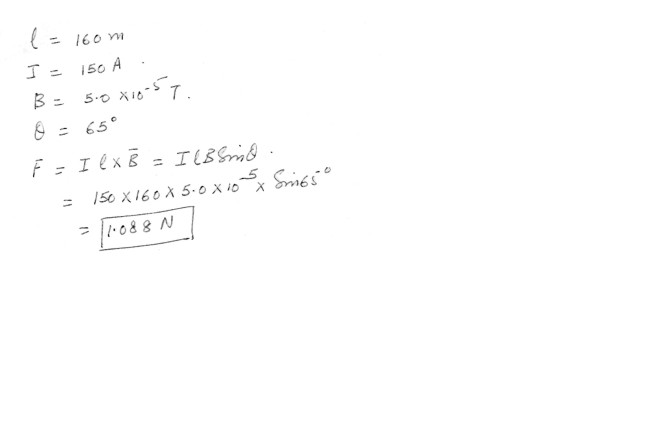 l = 160 m
I = 150 A .
B = 5.0 × 10⁻⁵ T .
θ = 65°
F = I l × B̄ = I l B Sinθ .
= 150 × 160 × 5.0 × 10⁻⁵ × Sin65°
= 1.088 N